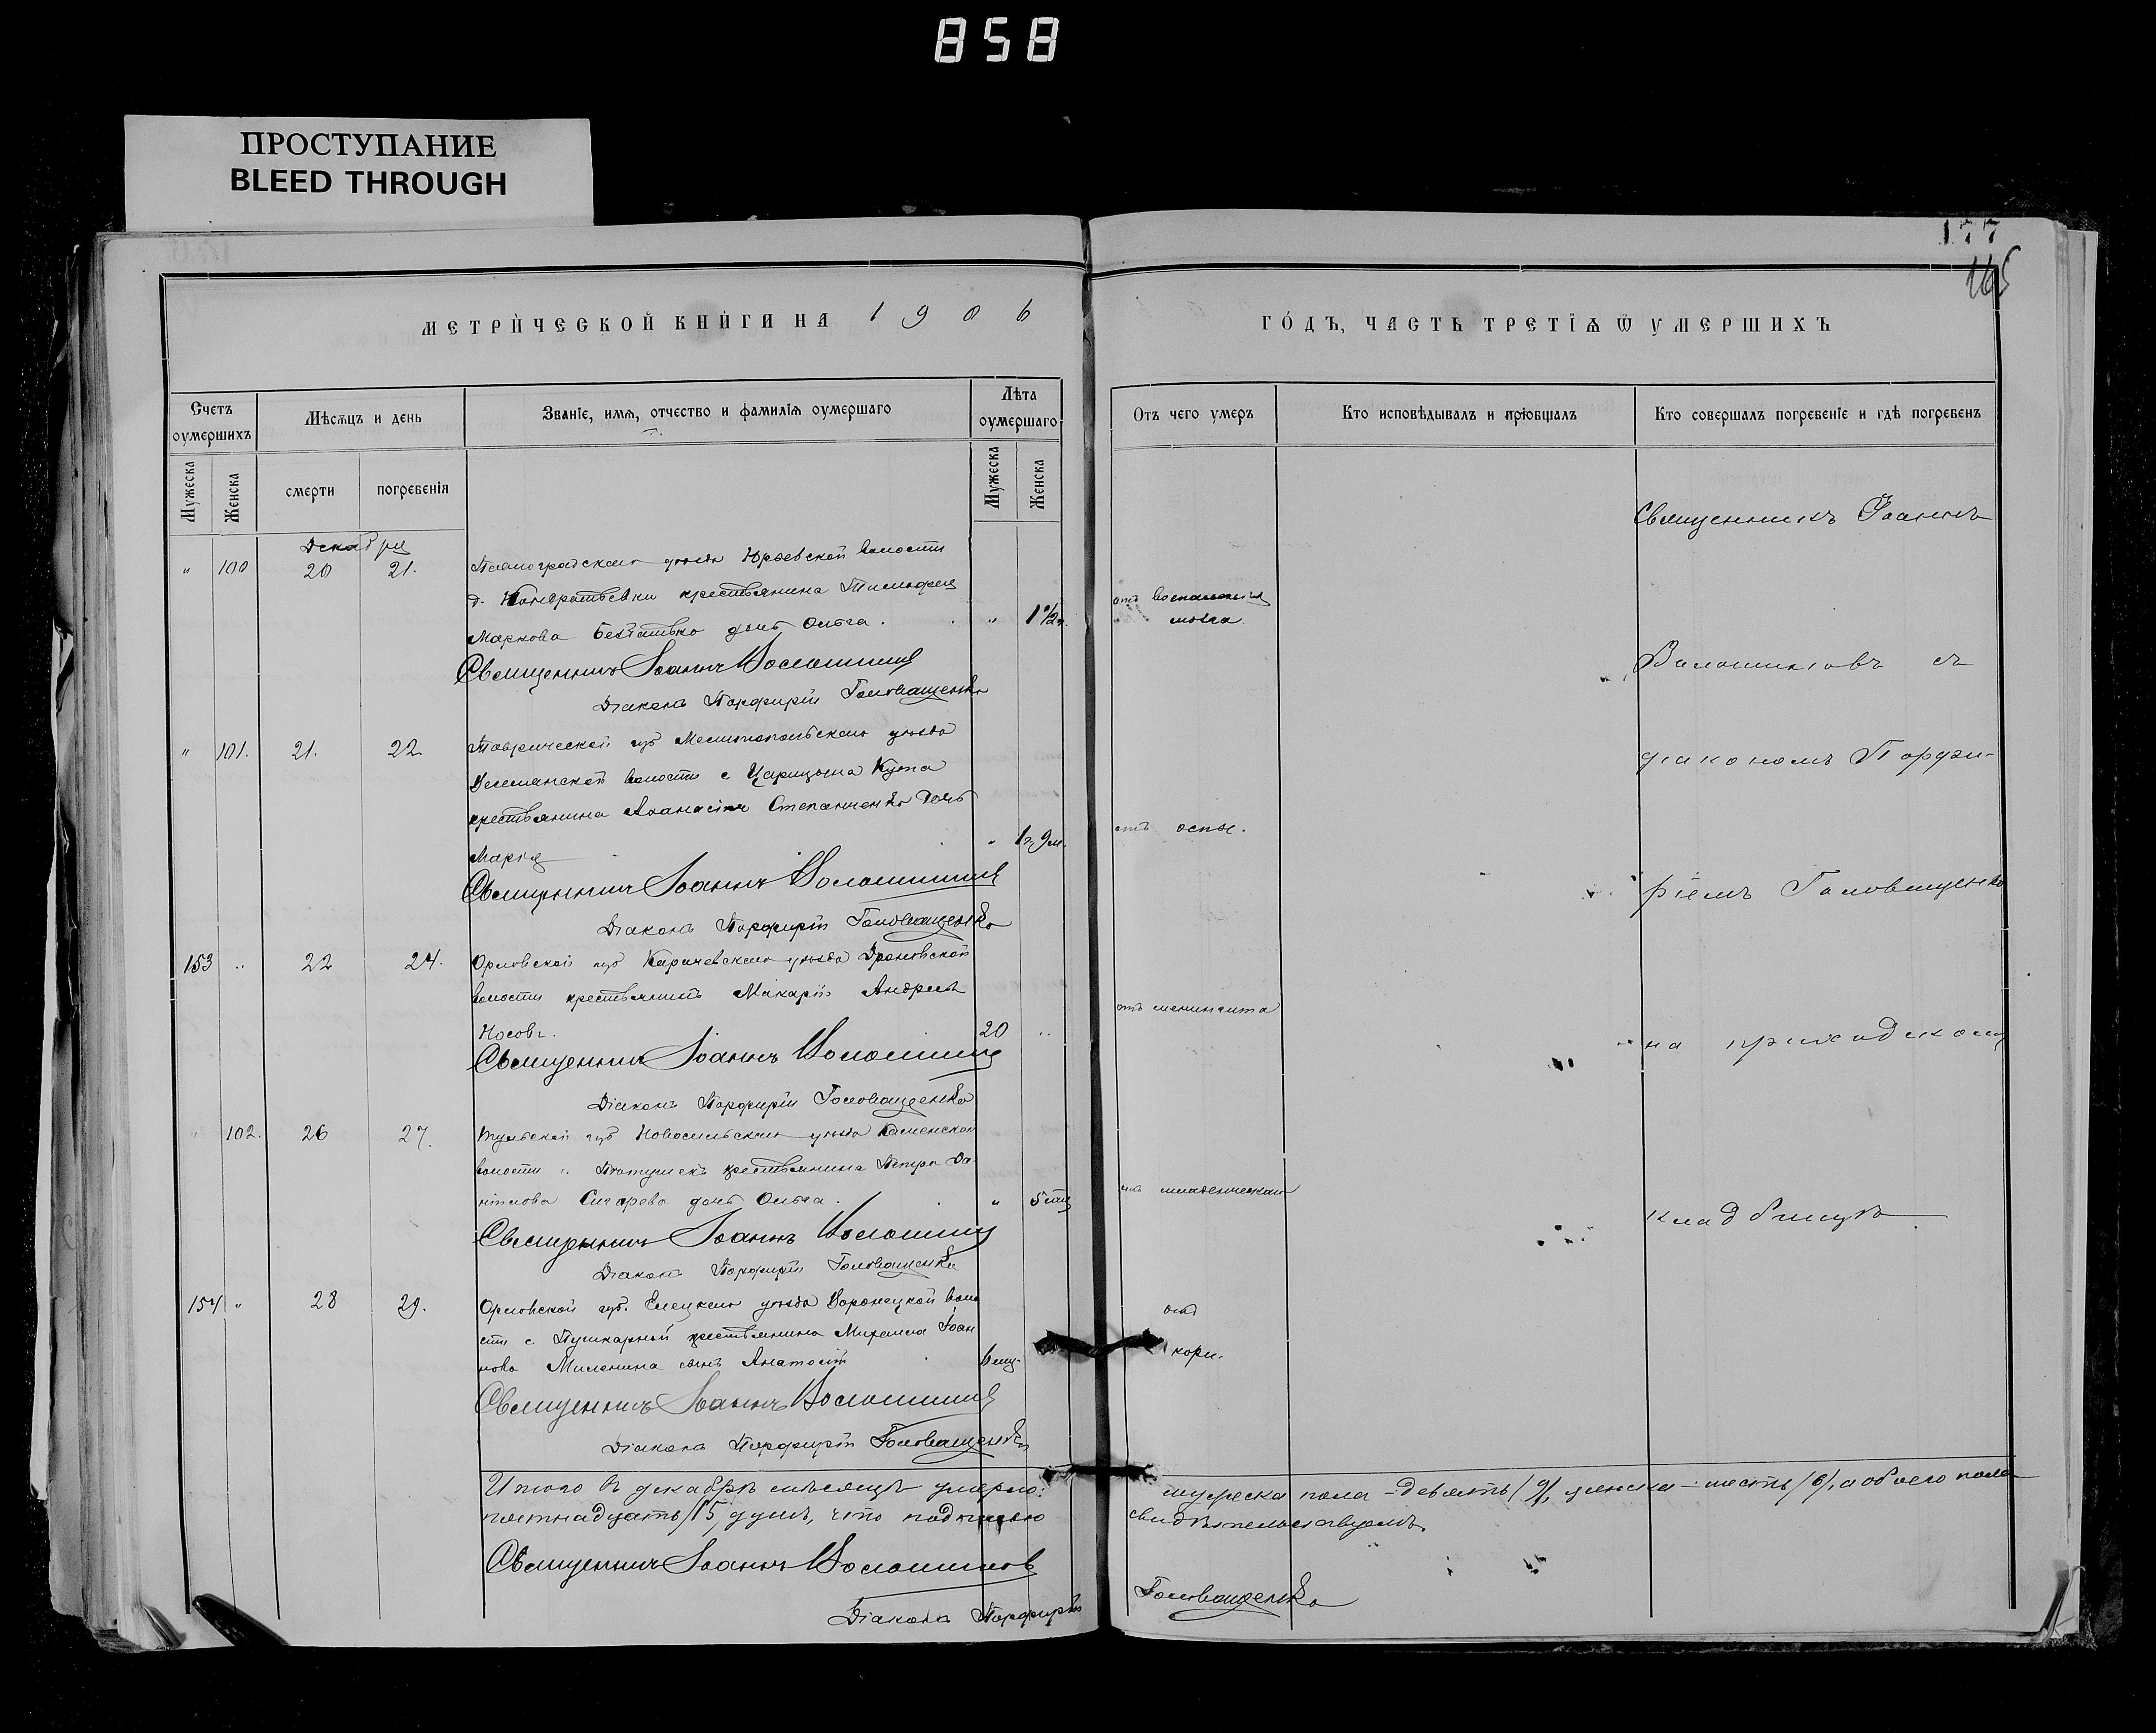 858
ПРОСТУПАНИЕ
BLEED THROUGH
177
165
МЕТРИ́ЧЕСКОЙ КНИ́ГИ НА 1906
ГО́ДЪ, ЧАСТЬ ТРЕТІѦ Ѿ УМЕРШИХЪ
Счетъ оумершихъ
Мѣсѧцъ и день
Званіе, имѧ, отчество и фамиліѧ оумершаго
Лѣта оумершаго
Отъ чего умеръ
Кто исповѣдывалъ и пріобщалъ
Кто совершалъ погребеніе и гдѣ погребенъ
Мужеска
Женска
смерти
погребенія
Мужеска
Женска
Декабря
" 100 20 21. Павлоградскаго уѣзда Юрьевской волости
д. Кондратьевки крестьянина Тимофея
Маркова дочь Ольга. " 1 1/2 г. отъ воспаленія мозга
Священникъ Іоаннъ Волошиновъ
Діаконъ Порфирій Головащенко
" 101. 21. 22. Таврической губ Мелитопольскаго уѣзда
волости с Царицына Кута
крестьянина Аѳанасія Степанченко дочь
Марія " 1 г. 9 м. отъ оспы.
Священникъ Іоаннъ Волошиновъ
Діаконъ Порфирій Головащенко
153 " 22 24. Орловской губ Карачевскаго уѣзда Дроновской
волости крестьянинъ Макарій Андреевъ
Носовъ. 20 " отъ менингита
Священникъ Іоаннъ Волошиновъ
Діаконъ Порфирій Головащенко
" 102. 26 27. Тульской губ Новосильскаго уѣзда Каменской
волости с. крестьянина Петра Да-
нілова дочь Ольга. " 5 мѣц отъ младенческой
Священникъ Іоаннъ Волошиновъ
Діаконъ Порфирій Головащенко
154 " 28 29. Орловской губ. Елецкаго уѣзда Воронецкой воло
сти с. Пушкарной крестьянина Михаила Іоан
нова Миленина сынъ Анатолій 6 мц. отъ кори.
Священникъ Іоаннъ Волошиновъ
Діаконъ Порфирій Головащенко
Священникъ Іоаннъ
Волошиновъ съ
діакономъ Порфи-
ріемъ Головащенко
на приходскомъ
кладбищѣ
Итого въ декабрѣ мѣсяцѣ умерло: мужеска пола - девять /9/, женска - шесть /6/, а обоего пола
пятнадцать /15/ душъ, что подписью свидѣтельствуемъ.
Священникъ Іоаннъ Волошиновъ
Діаконъ Порфирій Головащенко